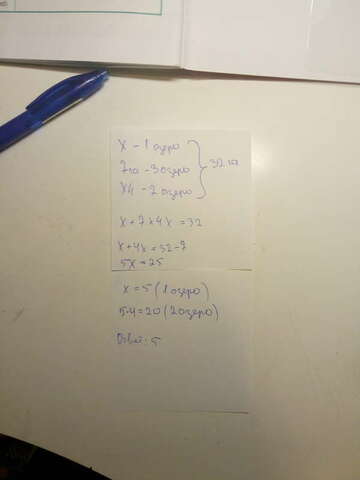 x - 1 озеро
7га - 3 озеро
x4 - 2 озеро
32 га
x + 7 + 4x = 32
x + 4x = 32 - 7
5x = 25
x = 5 (1 озеро)
5·4 = 20 (2 озеро)
Ответ: 5